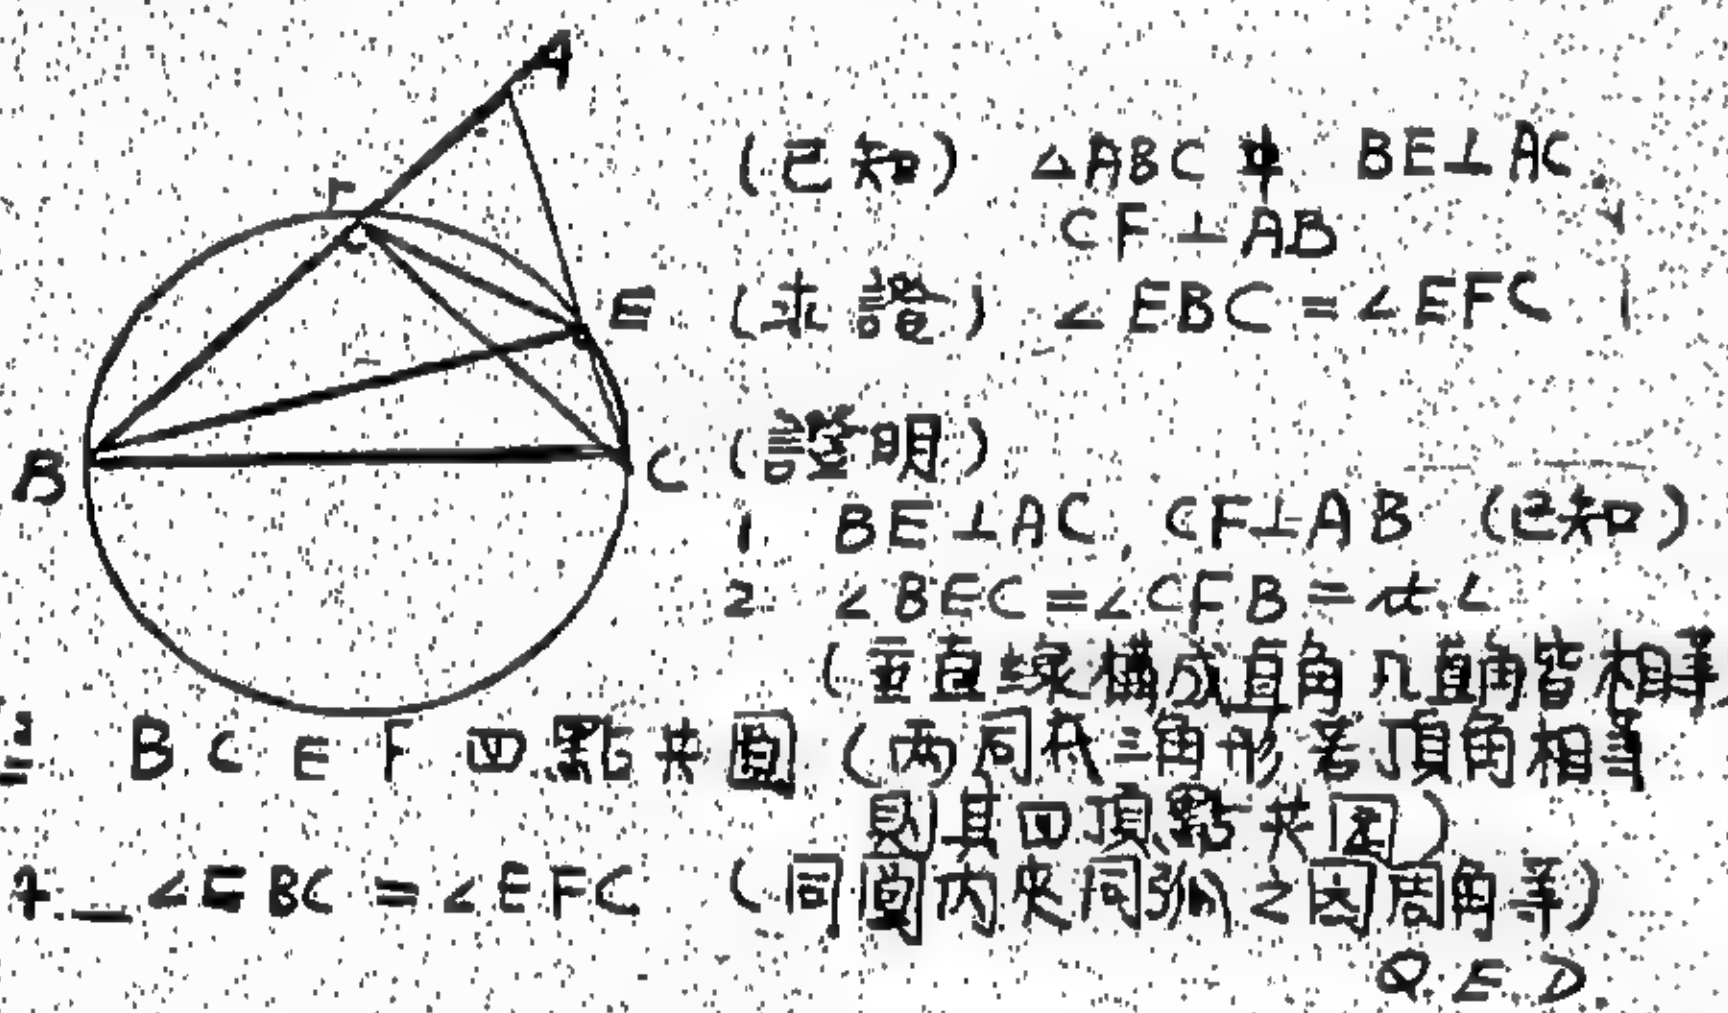 A
F
E
B
C
(已知) △ABC中 BE⊥AC,
CF⊥AB
(求證) ∠EBC=∠EFC
(證明)
1. BE⊥AC, CF⊥AB (已知)
2. ∠BEC=∠CFB=rt.∠
(垂直線構成直角凡直角皆相等)
3. B C E F 四點共圓 (两同底三角形若頂角相等
則其四頂點共圓)
4. ∠EBC=∠EFC (同圓内夾同弧之圓周角等)
Q.E.D.